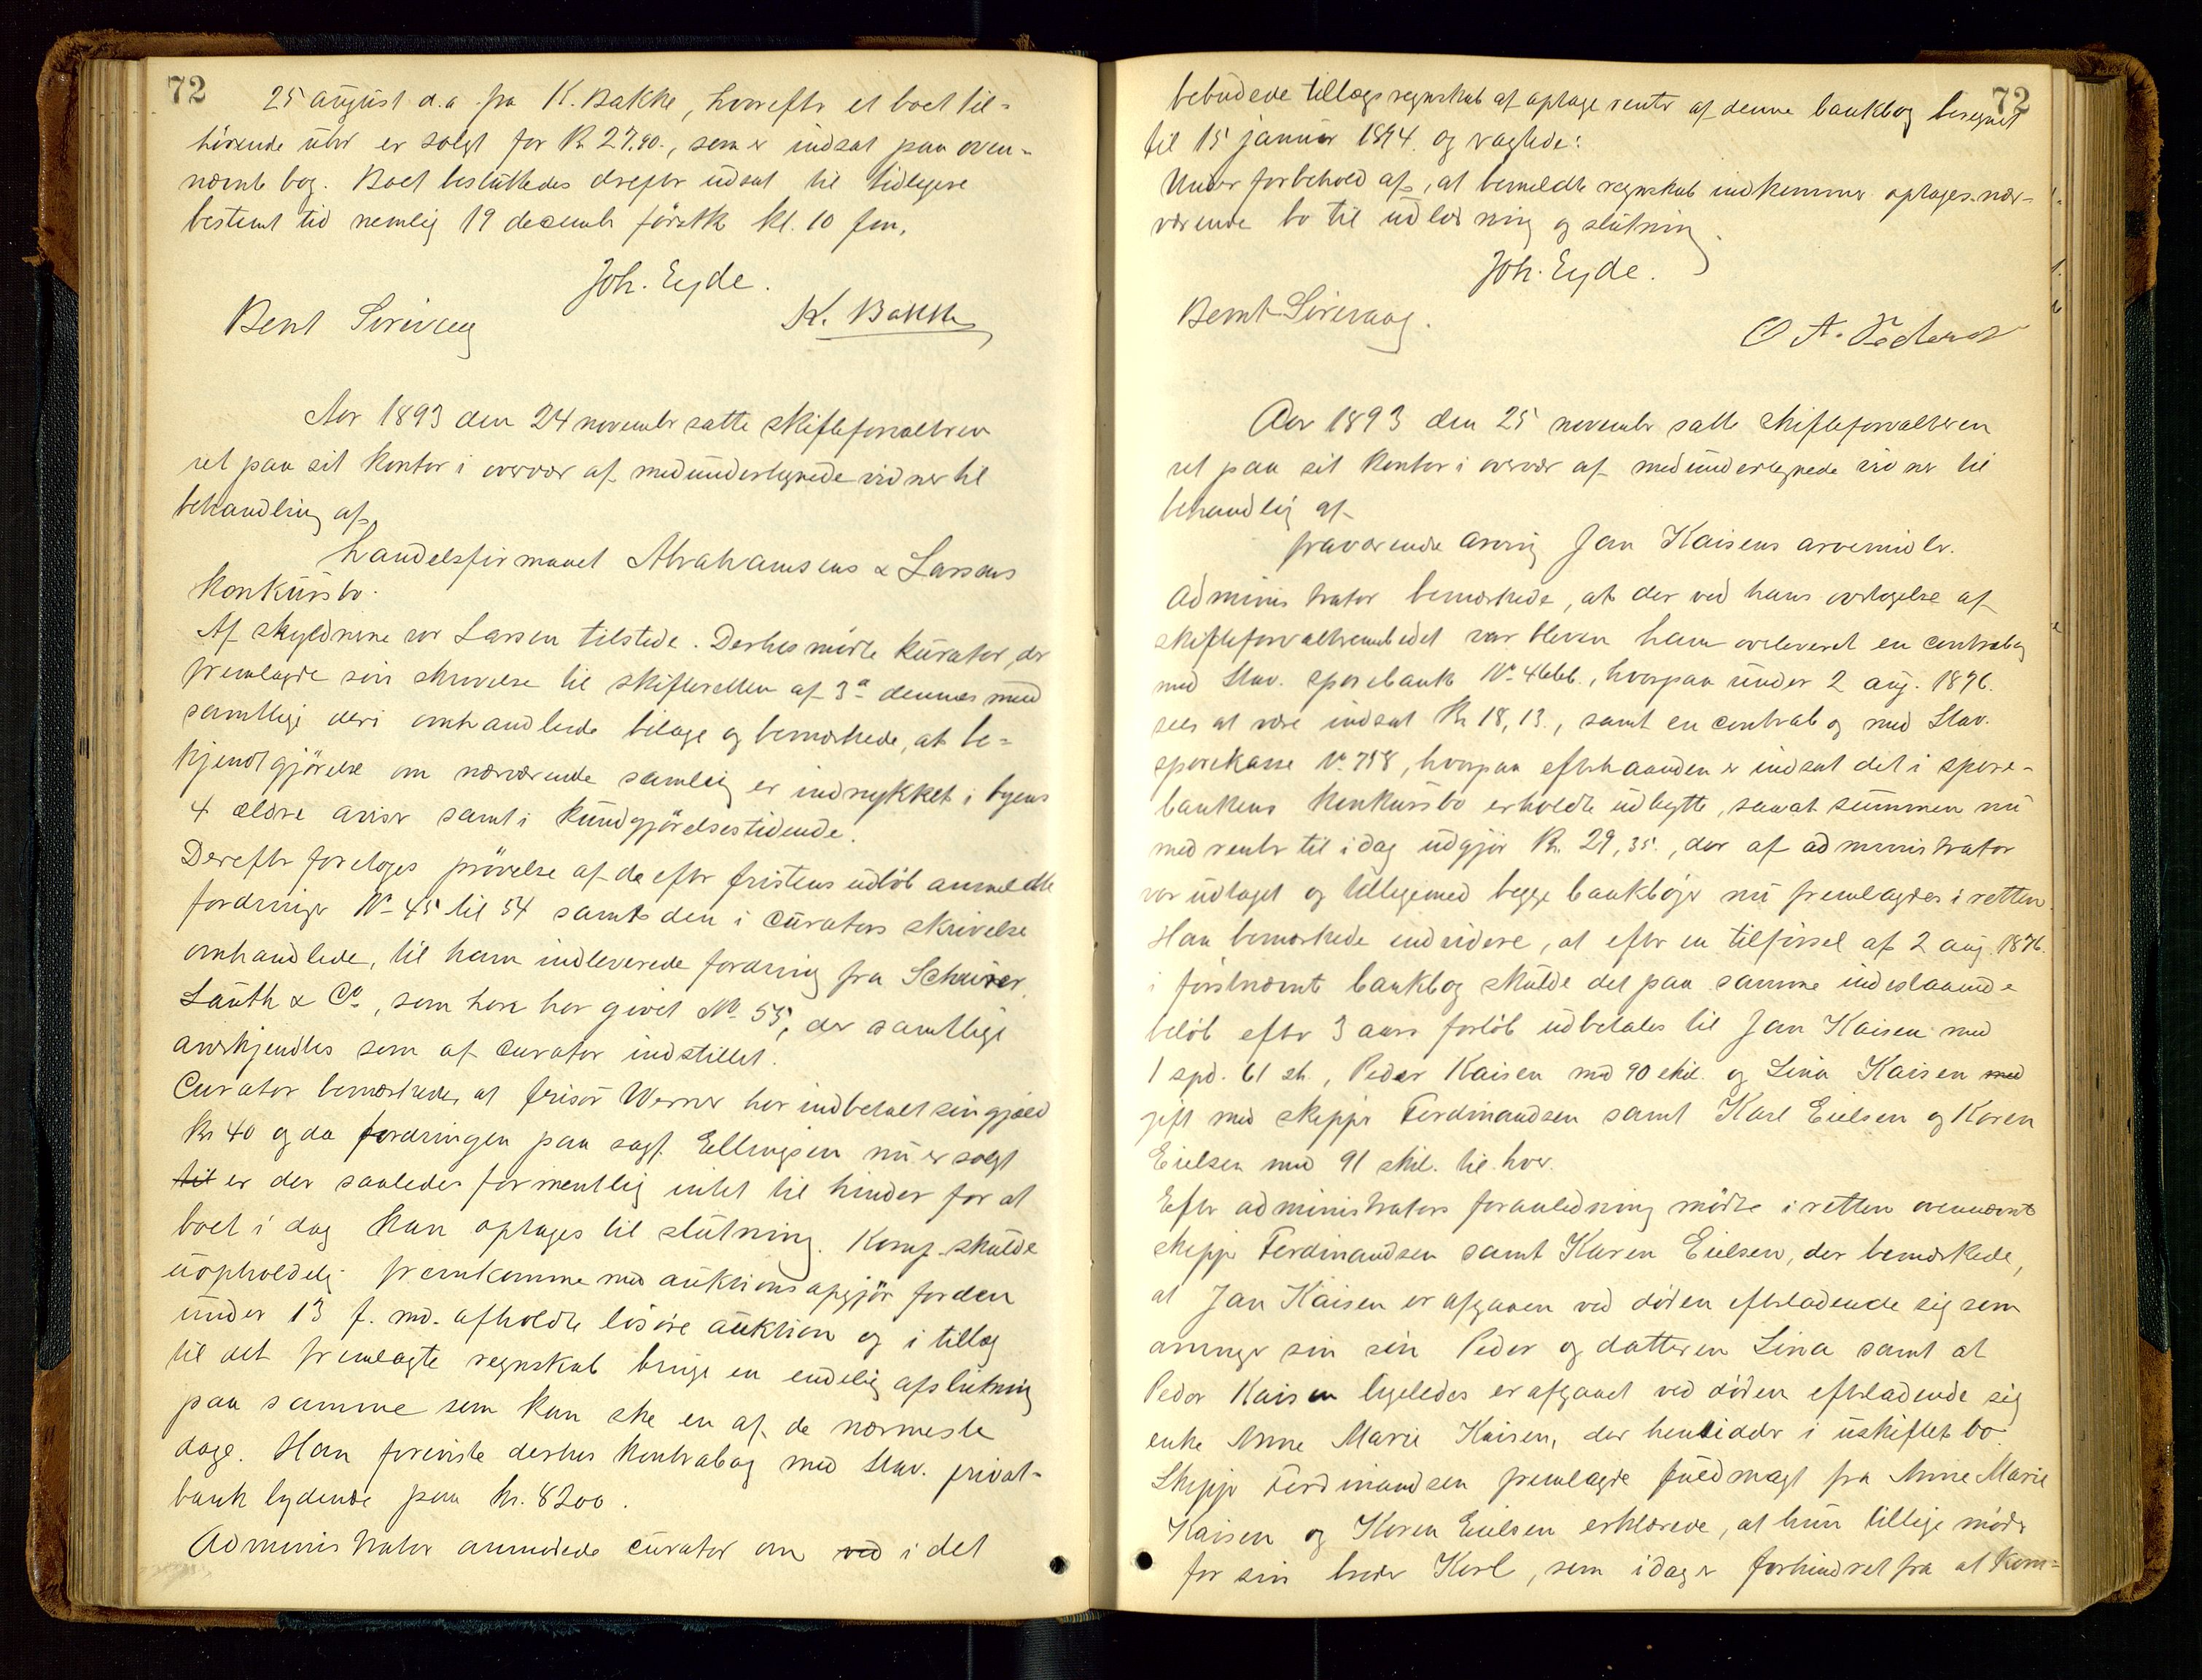 72
25 august d.a. fra K. Bakke, hvorefter et boet til-
hørende uhr er solgt for Kr 27.90., som er indsat paa oven-
nævnte bog. Boet besluttedes derefter udsat til tidligere
bestemt tid nemlig 19 decembr førstk kl. 10 fm.
Joh. Eyde.
Bent Sørivaag K. Bakke
Aar 1893 den 24 novembr satte skifteforvalteren
ret paa sit kontor i overvær af medundertegnede vidner til
behandling af
handelsfirmaet Abrahamsens & Larsens
konkursbo.
Af skyldnerne var Larsen tilstede. Derhos mødte kurator, der
fremlagde sin skrivelse til skifteretten af 3die dennes med
samtlige deri omhandlede bilage og bemærkede, at be-
kjendtgjørelse om nærværende samling er indrykket i byens
4 ældre aviser samt i Kundgjørelsestidende.
Derefter foretoges prøvelse af de efter fristens udløb anmeldte
fordringer No 45 til 54 samt den i curators skrivelse
omhandlede, til ham indleverede fordring fra Scheurer
Lauth & Co, som han har givet No. 55, der samtlige
anerkjendtes som af curator indstillet.
Curator bemærkede, at frisør Werner har indbetalt sin gjæld
Kr 40 og da fordringen paa sagf. Ellingsen nu er solgt
til er der saaledes formentlig intet til hinder for at
boet i dag kan optages til slutning. Komp. skulde
uopholdelig fremkomme med auktionsopgjør for den
under 13 f. md. afholdte løsøre auktion og i tillæg
til det fremlagte regnskab bringe en endelig afslutning
paa samme som kan ske en af de nærmeste
dage. Han foreviste derhos kontrabog med Stav. privat-
bank lydende paa kr. 8200.
Administrator anmodede curator om ved i det
72
bebudede tillægsregnskab at optage renter af denne bankbog beregnet
til 15 januar 1894 og vagtede:
Under forbehold af, at bemeldte regnskab indkommer optages nær-
værende bo til udlodning og slutning.
Joh. Eyde.
Bernt Sørivaag.
O A.
Aar 1893 den 25 novembr satte skifteforvalteren
ret paa sit kontor i overvær af medundertegnede vidner til
behandlig af
fraværende arving Jan Kaisens arvemidler.
Administrator bemærkede, at der ved hans overtagelse af
skifteforvalterembedet var bleven ham overleveret en contrabog
med Stav. sparebank No 4666., hvorpaa under 2 aug. 1876.
sees at være indsat Kr 18,13., samt en contrabog med Stav.
sparekasse No 798, hvorpaa efterhaanden er indsat det i spare-
bankens konkursbo erholdte udbytte, saaat summen nu
med renter til idag udgjør Kr. 29,35., der af administrator
var udtaget og tilligemed begge bankbøger nu fremlagdes i retten.
Han bemærkede endvidere, at efter en tilførsel af 2 aug. 1876.
i førstnævnte bankbog skulde det paa samme indestaaende
beløb efter 3 aars forløb udbetales til Jan Kaisen med
1 spd. 61 sk, Peder Kaisen md 90 skil. og Lina Kaisen med
gift med skipper Ferdinandsen samt Karl Eielsen og Karen
Eielsen med 91 skil. til hver.
Efter administrators foranledning mødte i retten ovennævnte
skipper Ferdinandsen samt Karen Eielsen, der bemærkede,
at Jan Kaisen er afgaaen ved døden efterladende sig som
arvinger sin søn Peder og datteren Lina samt at
Peder Kaisen ligeledes er afgaaet ved døden efterladende sig
enke Anne Marie Kaisen, der hensidder i uskiftet bo.
Skipper Ferdinandsen fremlagde fuldmagt fra Anne Marie
Kaisen og Karen Eielsen erklærede, at hun tillige møder
for sin broder Karl, som idag er forhindret fra at kom-